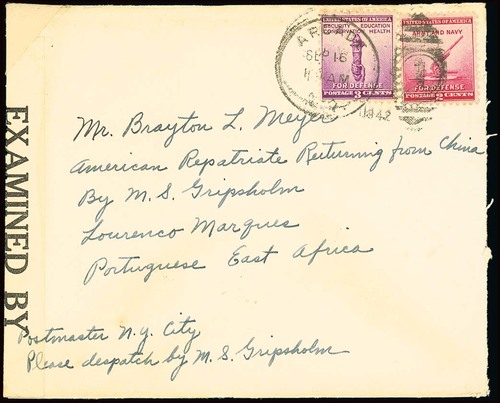 UNITED STATES OF AMERICA
SECURITY EDUCATION
CONSERVATION HEALTH
FOR DEFENSE
POSTAGE 3 CENTS
UNITED STATES OF AMERICA
ARMY AND NAVY
FOR DEFENSE
POSTAGE 2 CENTS
SEP 16
AM
1942
Mr. Brayton L. Meyer
American Repatriate Returning from China
By M. S. Gripsholm
Lourenco Marques
Portuguese East Africa
Postmaster N.Y. City
Please despatch by M. S. Gripsholm
EXAMINED BY